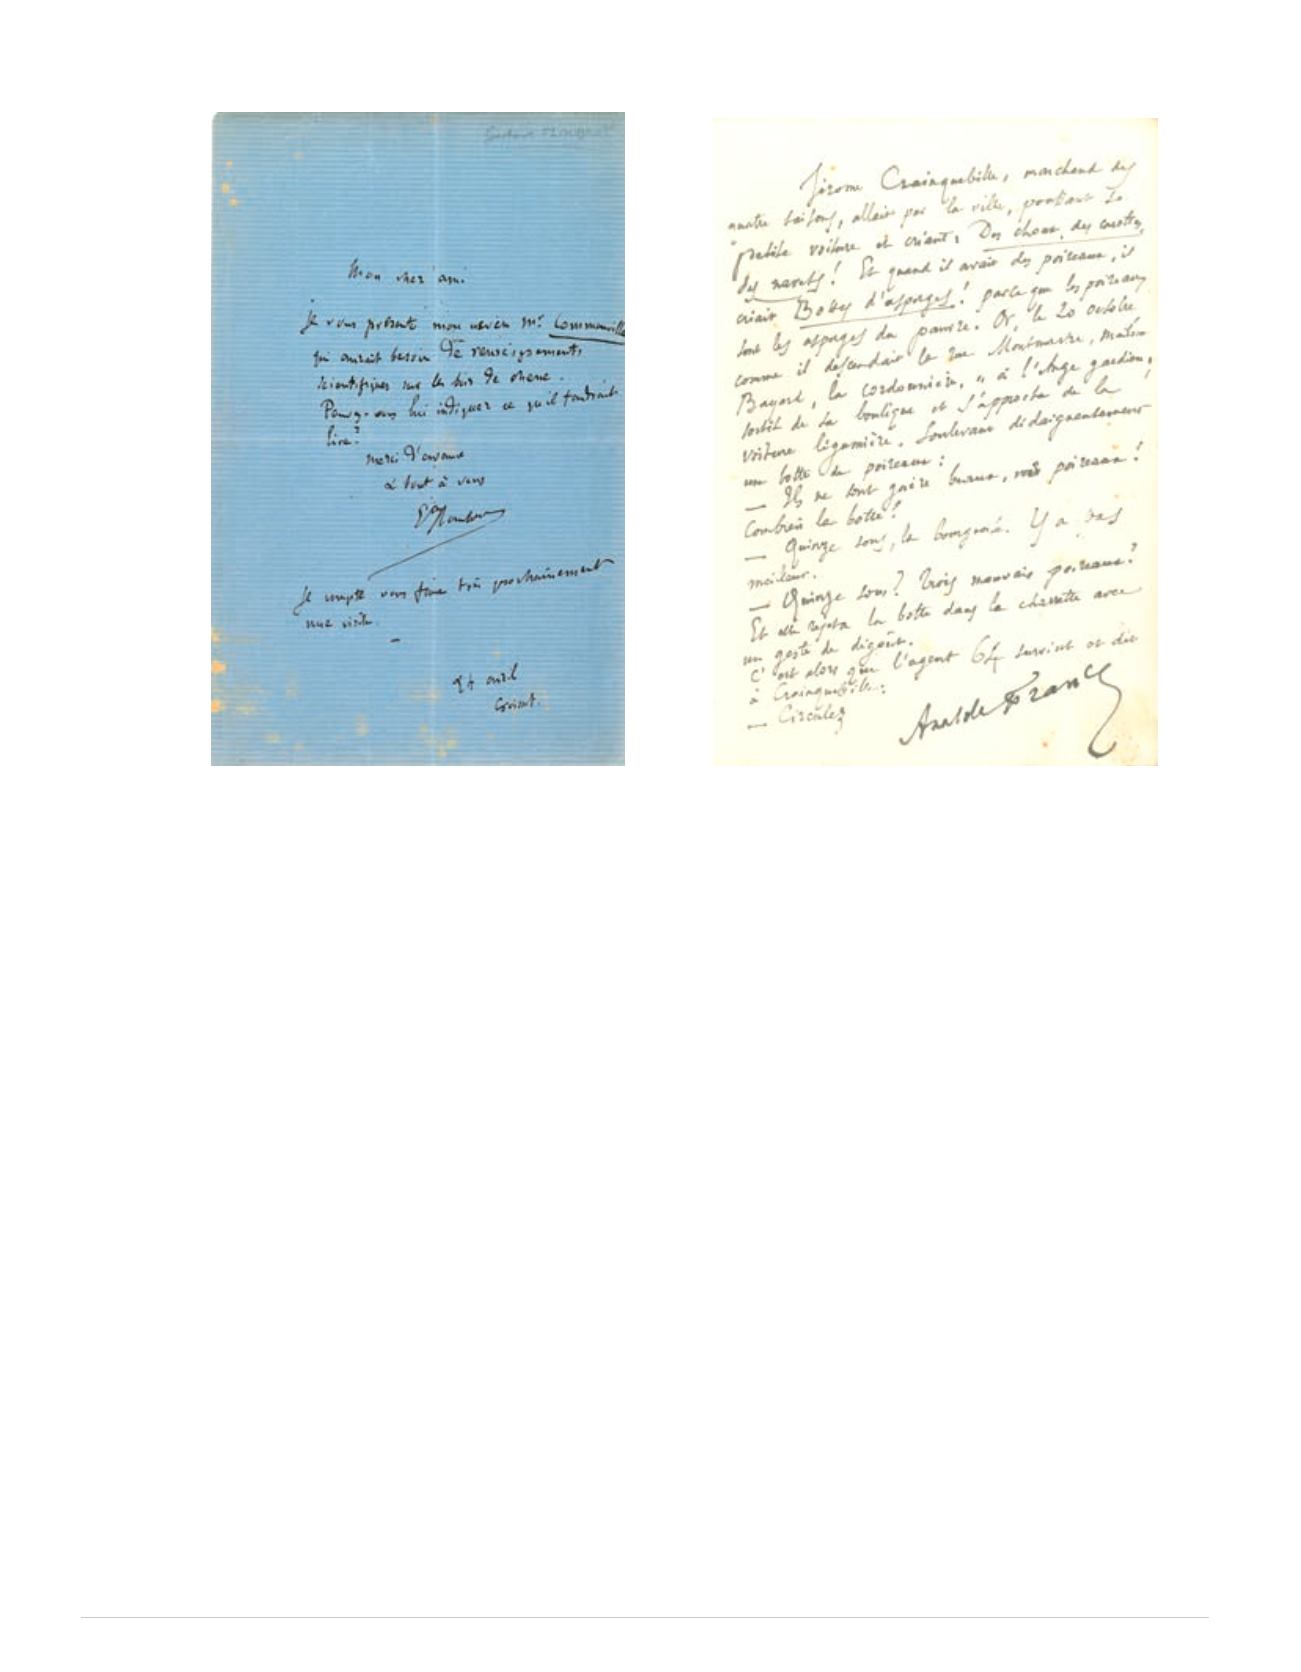 Gustave Flaubert
Mon cher ami
Je vous présente mon neveu Mr. Commanville
qui aurait besoin de renseignements
scientifiques sur les bois de chene.
Pouvez-vous lui indiquer ce qu'il faudrait
lire?
merci d'avance
& tout à vous
Gve Flaubert
Je compte vous faire très prochainement
une visite.
24 avril
Croisset.
Jérome Crainquebille, marchand des
quatre saisons, allait par la ville, poussant sa
petite voiture et criant: Des choux, des carottes,
des navets! Et quand il avait des poireaux, il
criait Bottes d'asperges! parce que les poireaux
sont les asperges du pauvre. Or, le 20 octobre
comme il descendait la rue Montmartre, Madame
Bayard, la cordonnière, "à l'Ange gardien,"
sortit de sa boutique et s'approcha de la
voiture légumière. Soulevant dédaigneusement
une botte de poireaux:
— Ils ne sont guère beaux, vos poireaux!
Combien la botte?
— Quinze sous, la bourgeoise. Y a pas
meilleur.
— Quinze sous? Trois mauvais poireaux?
Et elle rejeta la botte dans la charrette avec
un geste de dégoût.
C'est alors que l'agent 64 survint et dit
à Crainquebille:
— Circulez
Anatole France